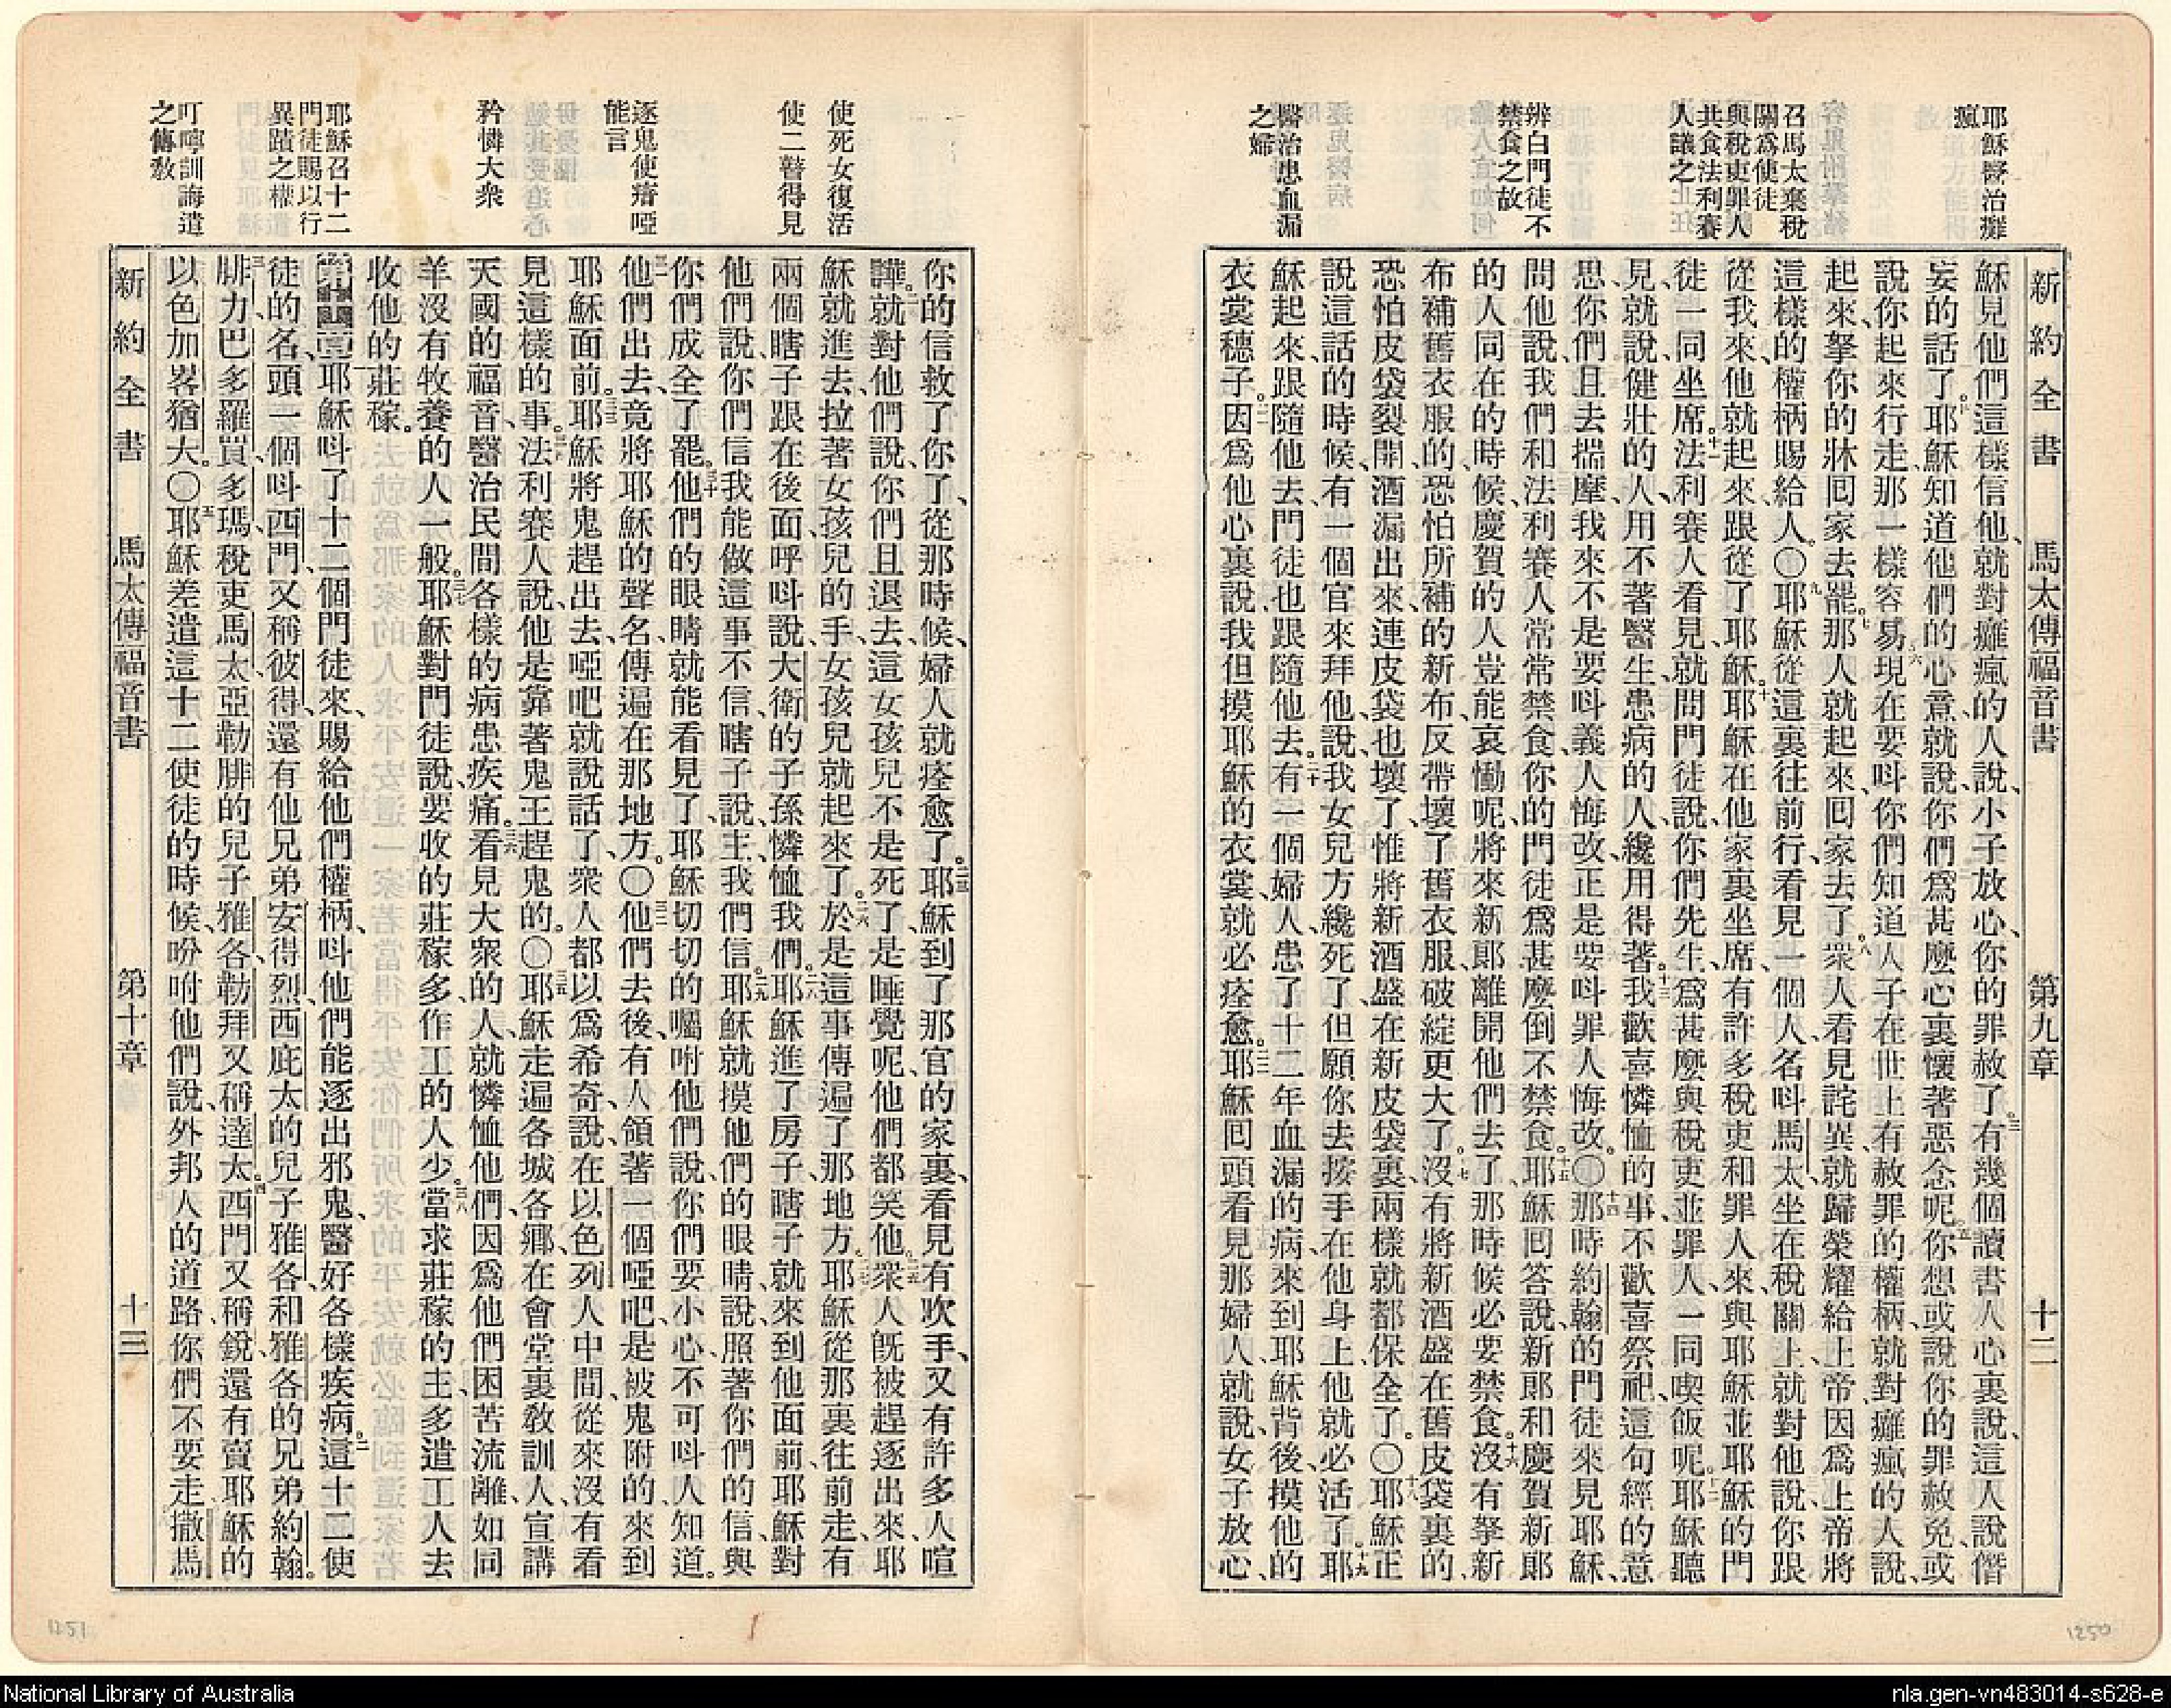 新約全書 馬太傳福音書 第九章 十二
耶穌醫治癱
瘋
召馬太棄稅
關爲使徒
與稅吏罪人
共食法利賽
人議之
辨白門徒不
禁食之故
醫治患血漏
之婦
穌見他們這樣信他、就對癱瘋的人說、小子放心、你的罪赦了。三有幾個讀書人心裏說、這人說僭
妄的話了。四耶穌知道他們的心意、就說、你們爲甚麼心裏懷著惡念呢。五你想或說你的罪赦免、或
說你起來行走、那一樣容易。六現在要呌你們知道人子在世上有赦罪的權柄、就對癱瘋的人說、
起來、拏你的牀囘家去罷。七那人就起來、囘家去了。八衆人看見詫異、就歸榮耀給上帝、因爲上帝將
這樣的權柄賜給人。〇九耶穌從這裏往前行、看見一個人名呌馬太、坐在稅關上、就對他說、你跟
從我來、他就起來、跟從了耶穌。十耶穌在他家裏坐席、有許多稅吏和罪人來、與耶穌並耶穌的門
徒一同坐席。十一法利賽人看見、就問門徒說、你們先生、爲甚麼與稅吏並罪人一同喫飯呢。十二耶穌聽
見、就說、健壯的人、用不著醫生、患病的人、纔用得著。十三我歡喜憐恤的事、不歡喜祭祀、這句經的意
思、你們且去揣摩、我來不是要呌義人悔改、正是要呌罪人悔改。〇十四那時約翰的門徒來見耶穌、
問他說、我們和法利賽人常常禁食、你的門徒爲甚麼倒不禁食。十五耶穌囘答說、新郞和慶賀新郞
的人同在的時候、慶賀的人豈能哀慟呢、將來新郞離開他們去了、那時候必要禁食。十六沒有拏新
布補舊衣服的、恐怕所補的新布、反帶壞了舊衣服、破綻更大了。十七沒有將新酒盛在舊皮袋裏的、
恐怕皮袋裂開、酒漏出來、連皮袋也壞了、惟將新酒盛在新皮袋裏、兩樣就都保全了。〇十八耶穌正
說這話的時候、有一個官來拜他、說、我女兒方纔死了、但願你去按手在他身上、他就必活了。十九耶
穌起來、跟隨他去、門徒也跟隨他去。二十有一個婦人、患了十二年血漏的病、來到耶穌背後、摸他的
衣裳穗子。二一因爲他心裏說、我但摸耶穌的衣裳、就必痊愈。二二耶穌囘頭看見那婦人、就說、女子放心、
使死女復活
使二瞽得見
逐鬼使瘖啞
能言
矜憐大衆
耶穌召十二
門徒賜以行
異蹟之權
叮嚀訓誨遣
之傳敎
你的信救了你了、從那時候、婦人就痊愈了。二三耶穌到了那官的家裏、看見有吹手、又有許多人喧
譁。二四就對他們說、你們且退去、這女孩兒不是死了、是睡覺呢、他們都笑他。二五衆人旣被趕逐出來、耶
穌就進去、拉著女孩兒的手、女孩兒就起來了。二六於是這事傳遍了那地方。二七耶穌從那裏往前走、有
兩個瞎子跟在後面、呼呌說、大衛的子孫、憐恤我們。二八耶穌進了房子、瞎子就來到他面前、耶穌對
他們說、你們信我能做這事不信、瞎子說、主、我們信。二九耶穌就摸他們的眼睛、說、照著你們的信、與
你們成全了罷。三十他們的眼睛就能看見了、耶穌切切的囑咐他們說、你們要小心、不可呌人知道。
三一他們出去、竟將耶穌的聲名、傳遍在那地方。〇三二他們去後、有人領著一個啞吧、是被鬼附的、來到
耶穌面前。三三耶穌將鬼趕出去、啞吧就說話了、衆人都以爲希奇、說、在以色列人中間、從來沒有看
見這樣的事。三四法利賽人說、他是靠著鬼王趕鬼的。〇三五耶穌走遍各城各鄉、在會堂裏敎訓人、宣講
天國的福音、醫治民間各樣的病患疾痛。三六看見大衆的人、就憐恤他們、因爲他們困苦流離、如同
羊沒有牧養的人一般。三七耶穌對門徒說、要收的莊稼多、作工的人少。三八當求莊稼的主、多遣工人去
收他的莊稼。
第十章 一耶穌呌了十二個門徒來、賜給他們權柄、呌他們能逐出邪鬼、醫好各樣疾病。二這十二使
徒的名、頭一個呌西門、又稱彼得、還有他兄弟安得烈、西庇太的兒子雅各、和雅各的兄弟約翰。
三腓力、巴多羅買、多瑪、稅吏馬太、亞勒腓的兒子雅各、勒拜又稱達太。四西門又稱銳、還有賣耶穌的
以色加畧猶大。〇五耶穌差遣這十二使徒的時候、吩咐他們說、外邦人的道路、你們不要走、撒馬
新約全書 馬太傳福音書 第十章 十三
1251
1250
National Library of Australia
nla.gen-vn483014-s628-e